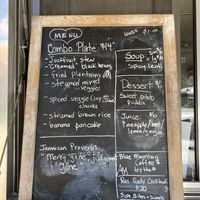 MENU
Combo Plate $14
- Jackfruit stew
- Steamed black beans
- fried plantains
- steamed mixed veggies
- spiced veggie soy chunks
- steamed brown rice
- banana pancake
Jamaican Proverbs
"Mercy
judgment
Soup
Spicy Lentil
Dessert
Sweet potato
Pudding
Juice:
Pineapple/
lemon/ginger
Blue Mountain
Coffee
by the
Ras Rody Cookbook
$20